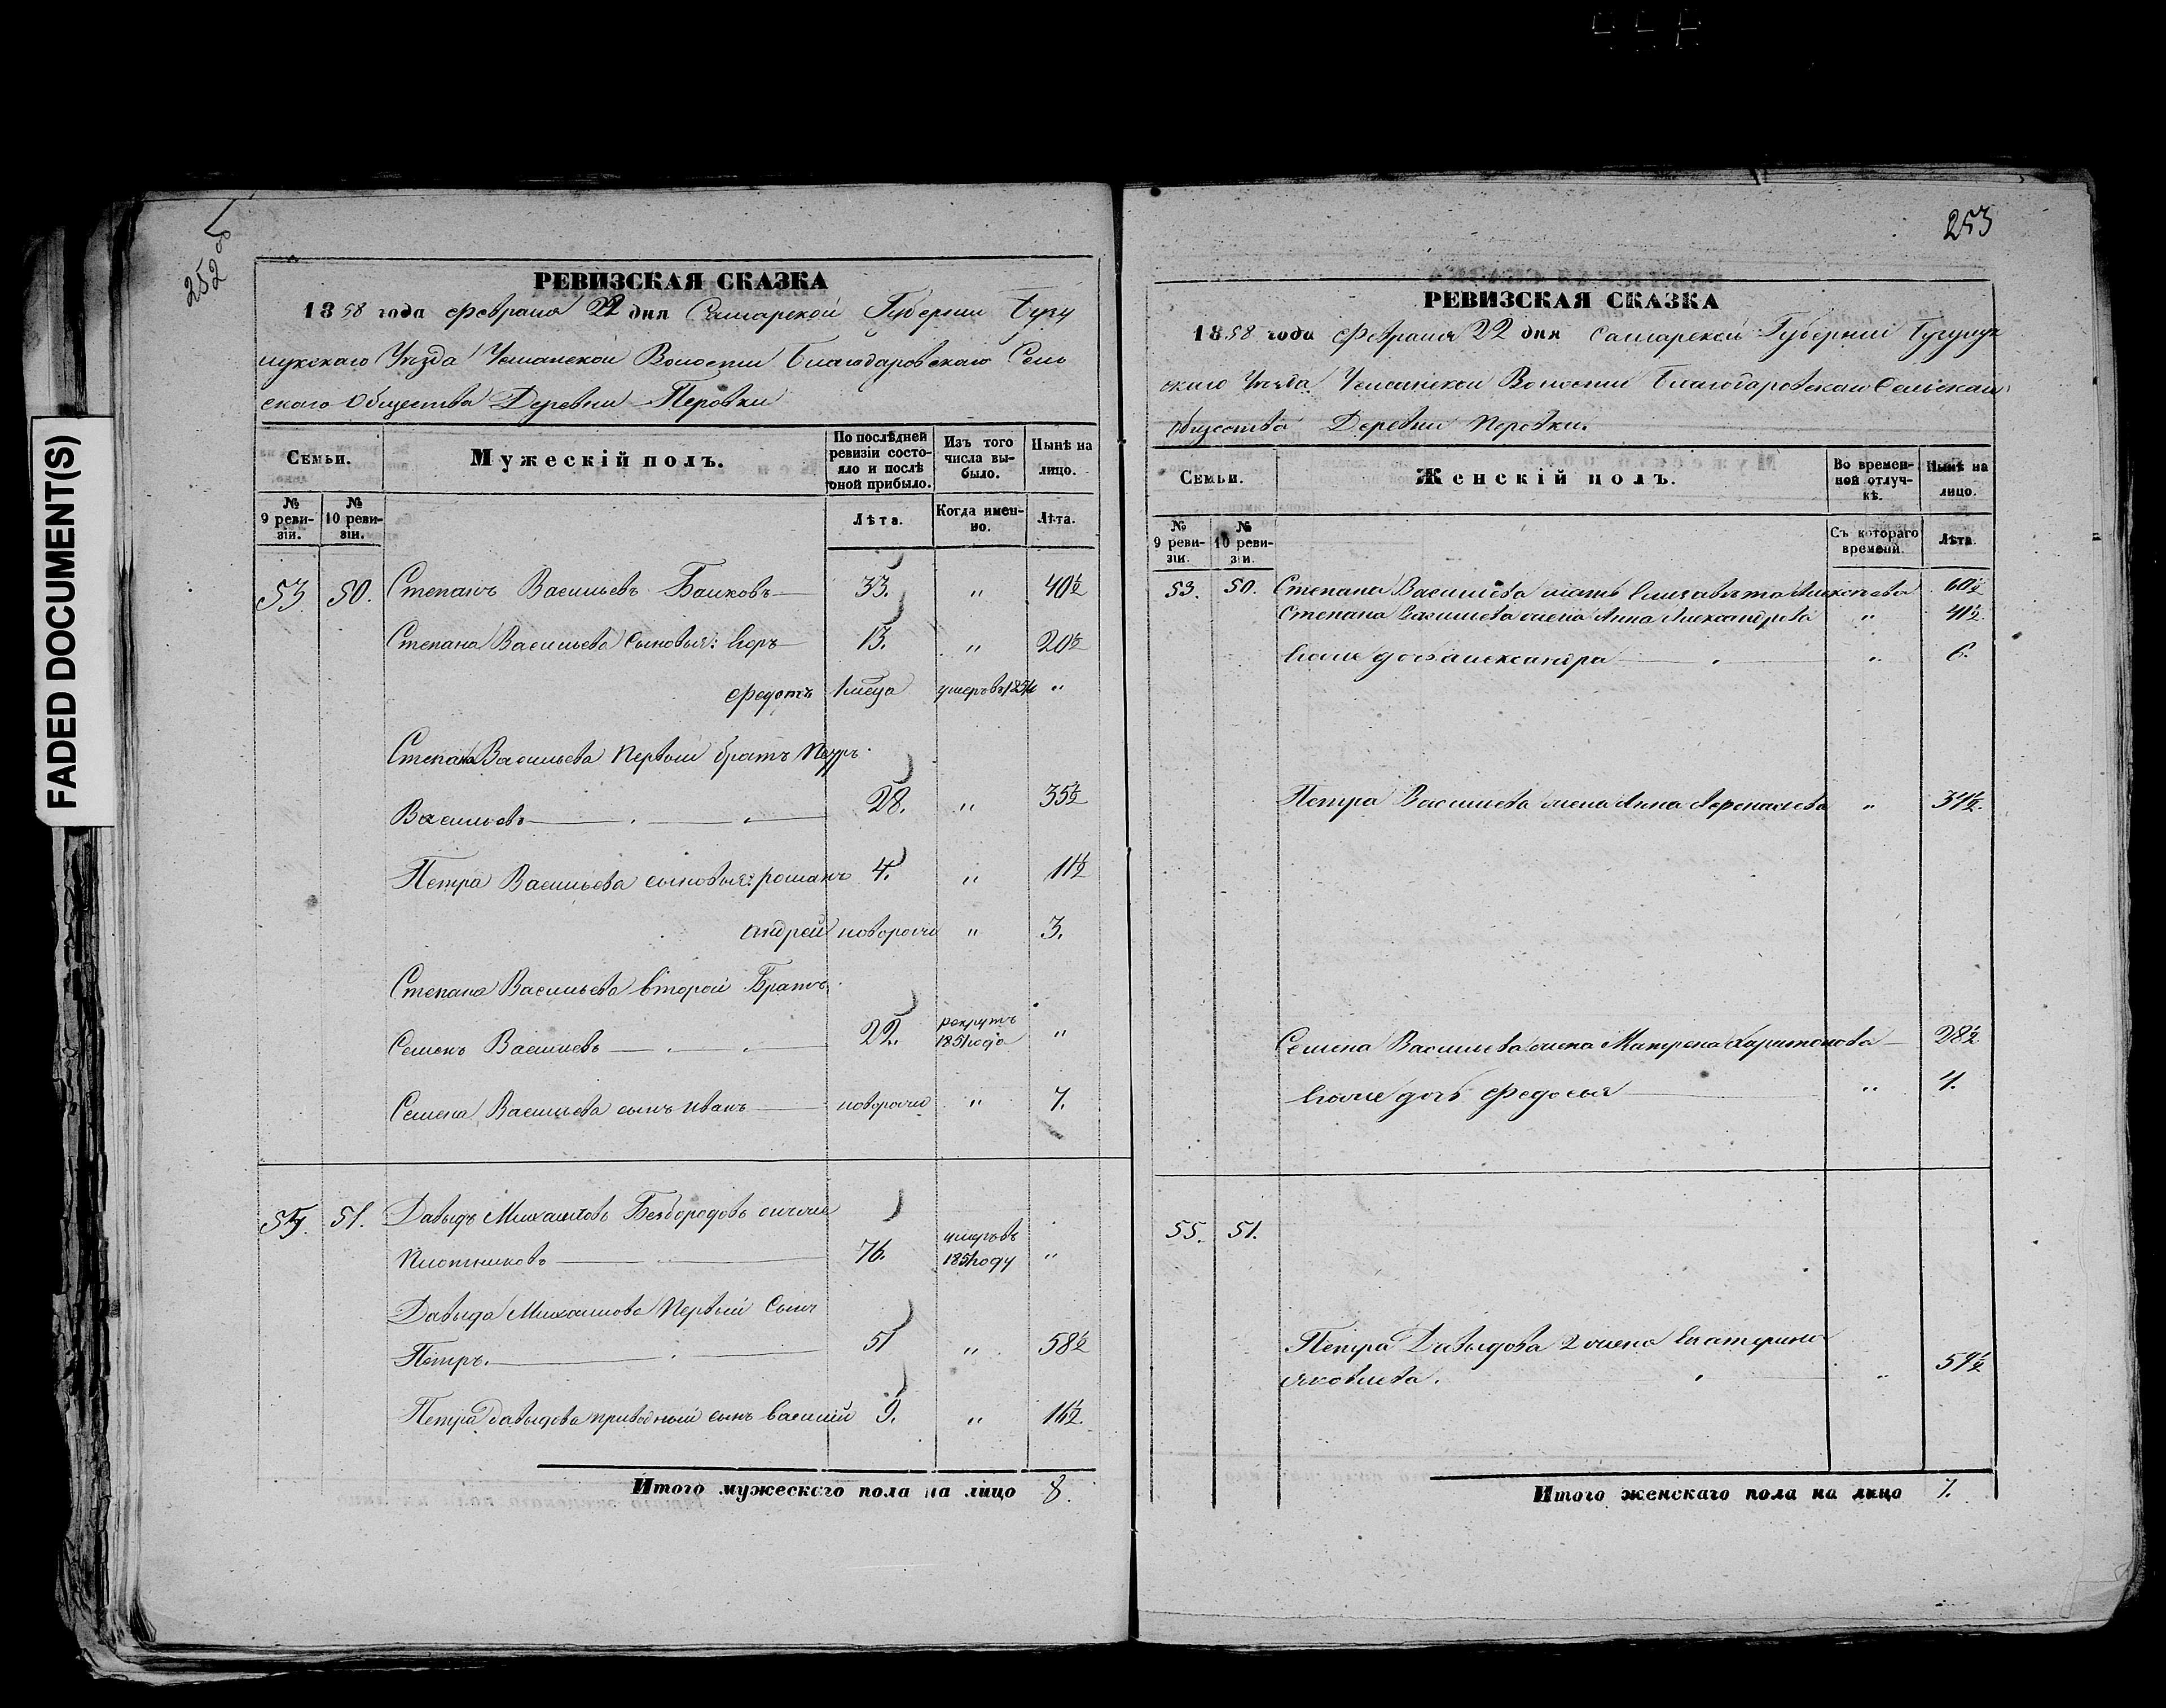 FADED DOCUMENT(S)
252 об
РЕВИЗСКАЯ СКАЗКА
1858 года Февраля 22 дня Самарской Губернии Бугу
Уезда Волости Благодаровскаго Сель
скаго Общества Деревни Перовки
Семьи.
Мужескій полъ.
По послѣдней ревизіи состояло и послѣ оной прибыло.
Изъ того числа выбыло.
Нынѣ на лицо.
№ 9 ревизіи.
№ 10 ревизіи.
Лѣта.
Когда именно.
Лѣта.
53. 50. Степанъ Васильевъ 33. " 40½
Степана Васильева сыновья: Егоръ 13. " 20½
Федотъ умеръ в "
Степана Васильева первый братъ Петръ
Васильевъ 28. " 35½
Петра Васильева сыновья: романъ 4. " 11½
андрей новорожд " 3.
Степана Васильева второй Братъ
Семенъ Васильевъ 22. рекрутъ 1851 года "
Семена Васильева сынъ иванъ новорожд " 7.
51. Давыдъ Михайловъ Безбородовъ онъ же
Плотниковъ 76. умеръ въ 1851 году "
Давыда Михайлова первый сынъ
Петръ. 51 " 58½
Петра Давыдова приводный сынъ василий 9. " 16½.
Итого мужескаго пола на лицо 8.
253
РЕВИЗСКАЯ СКАЗКА
1858 года Февраля 22 дня Самарской Губернии
скаго Уезда Волости Благодаровскаго Сельскаго
Общества Деревни Перовки.
Семьи.
Женскій полъ.
Во временной отлучкѣ.
Нынѣ на лицо.
№ 9 ревизіи.
№ 10 ревизіи.
Съ котораго времени.
Лѣта.
53. 50. Степана Васильева мать Елизавѣта Алексѣева 60½
Степана Васильева жена Анна Александрова " 41½
Егоже дочь александра " 6.
Петра Васильева жена Анна " 31½.
Семена Васильева жена Матрена Харитонова 28½
Егоже дочь Федосья " 4.
55. 51.
Петра Давыдова 2 жена Екатерина
Яковлева. "
Итого женскаго пола на лицо 7.